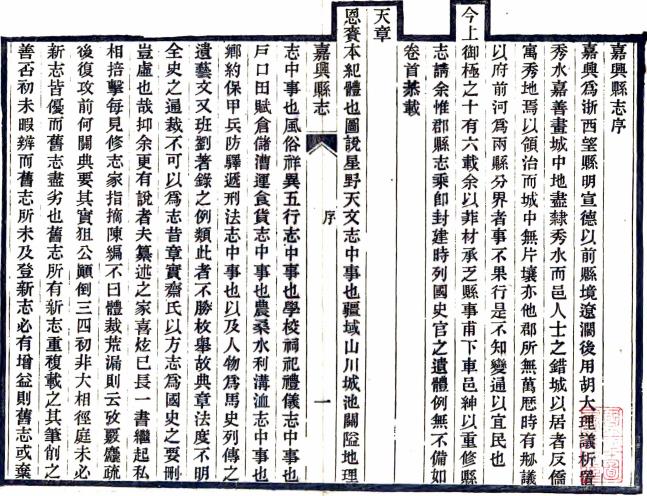 嘉興縣志序
嘉興為浙西望縣明宣德以前縣境遼濶後用胡大理議析置
秀水嘉善畫城中地盡隸秀水而邑人士之錯城以居者反僑
寓秀地焉以領治而城中無片壤亦他郡所無萬歷時有剏議
以府前河為兩縣分界者事不果行是不知變通以宜民也
今上御極之十有六載余以菲材承乏縣事甫下車邑紳以重修縣
志請余惟郡縣志乘卽封建時列國史官之遺體例無不備如
卷首恭載
天章
恩賚本紀體也圖說星野天文志中事也疆域山川城池關隘地理
嘉興縣志
序
一
志中事也風俗祥異五行志中事也學校祠祀禮儀志中事也
戸口田賦倉儲漕運食貨志中事也農桑水利溝洫志中事也
鄉約保甲兵防驛遞刑法志中事也以及人物為馬史列傳之
遺藝文又班劉著錄之例類此者不勝枚舉故典章法度不明
全史之通裁不可以為志昔章實齋氏以方志為國史之要刪
豈虛也哉抑余更有說者夫纂述之家喜炫已長一書繼起私
相掊擊每見修志家指摘陳編不曰體裁荒漏則云攷覈麤疏
後復攻前何關典要其實狙公顚倒三四初非大相徑庭未必
新志皆優而舊志盡劣也舊志所有新志重複載之其筆削之
善否初未暇辨而舊志所未及登新志必有增益則舊志或棄